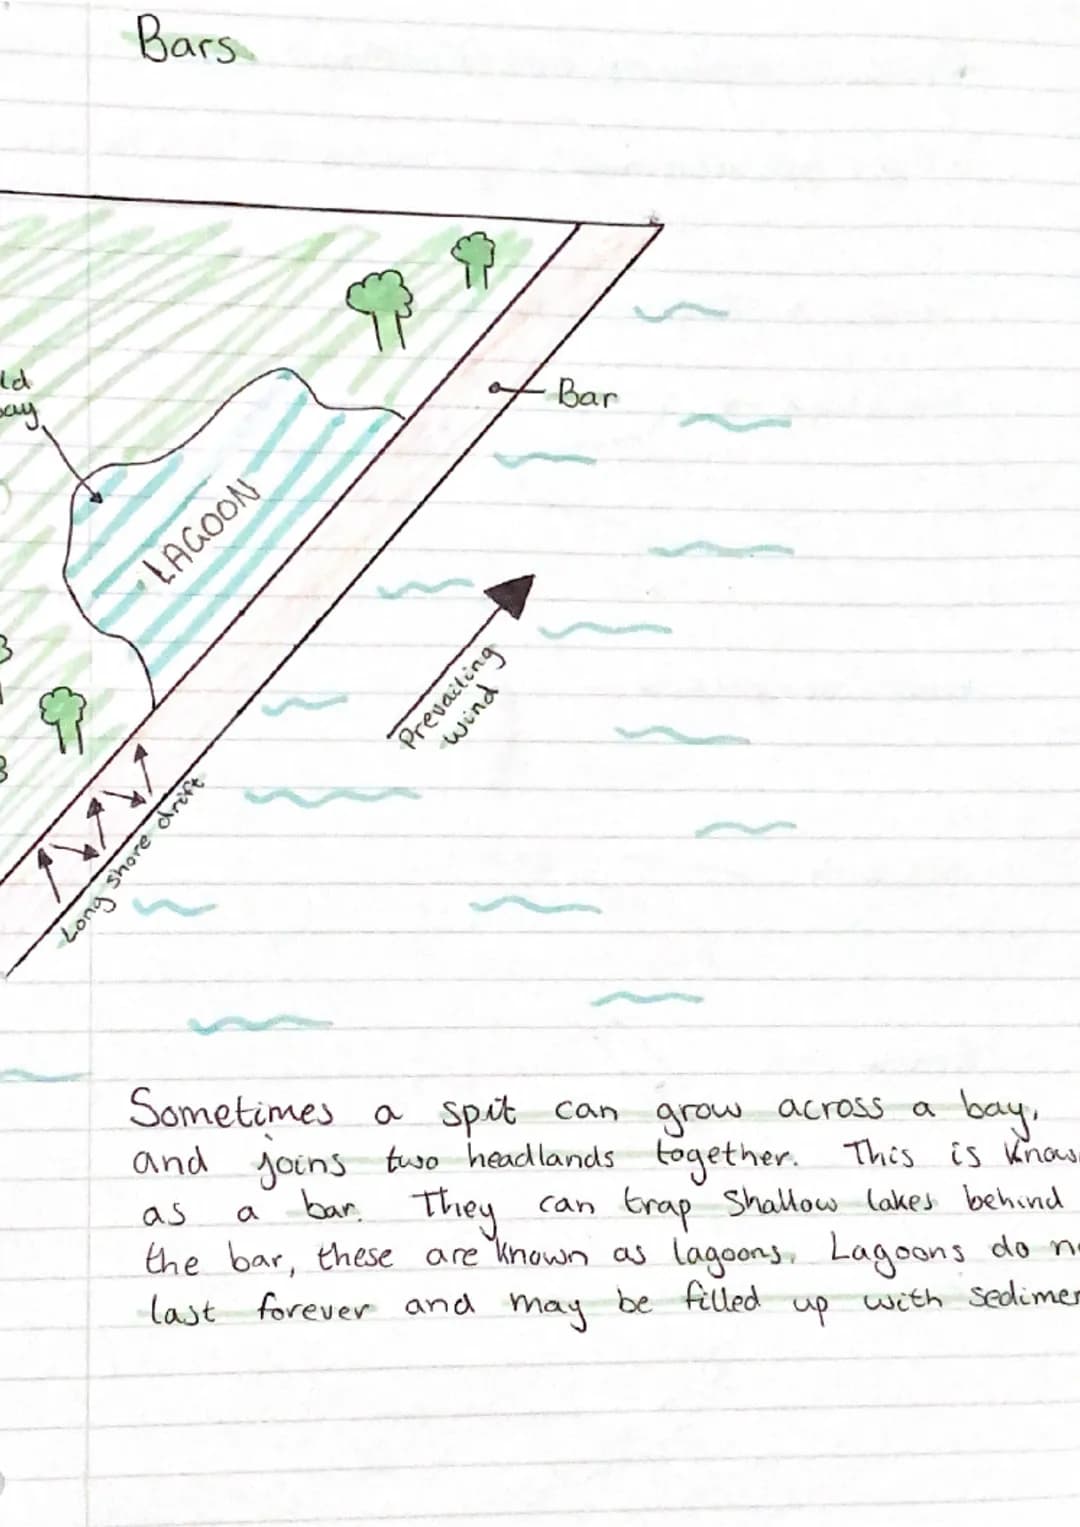 Bars
ld
ay
Bar
LAGOON
Prevailing
wind
Long shore drift
Sometimes a spit can grow across a bay,
and joins two headlands together. This is know
as a bar. They can trap shallow lakes behind
the bar, these are known as lagoons. Lagoons do no
last forever and may be filled up with sedimen